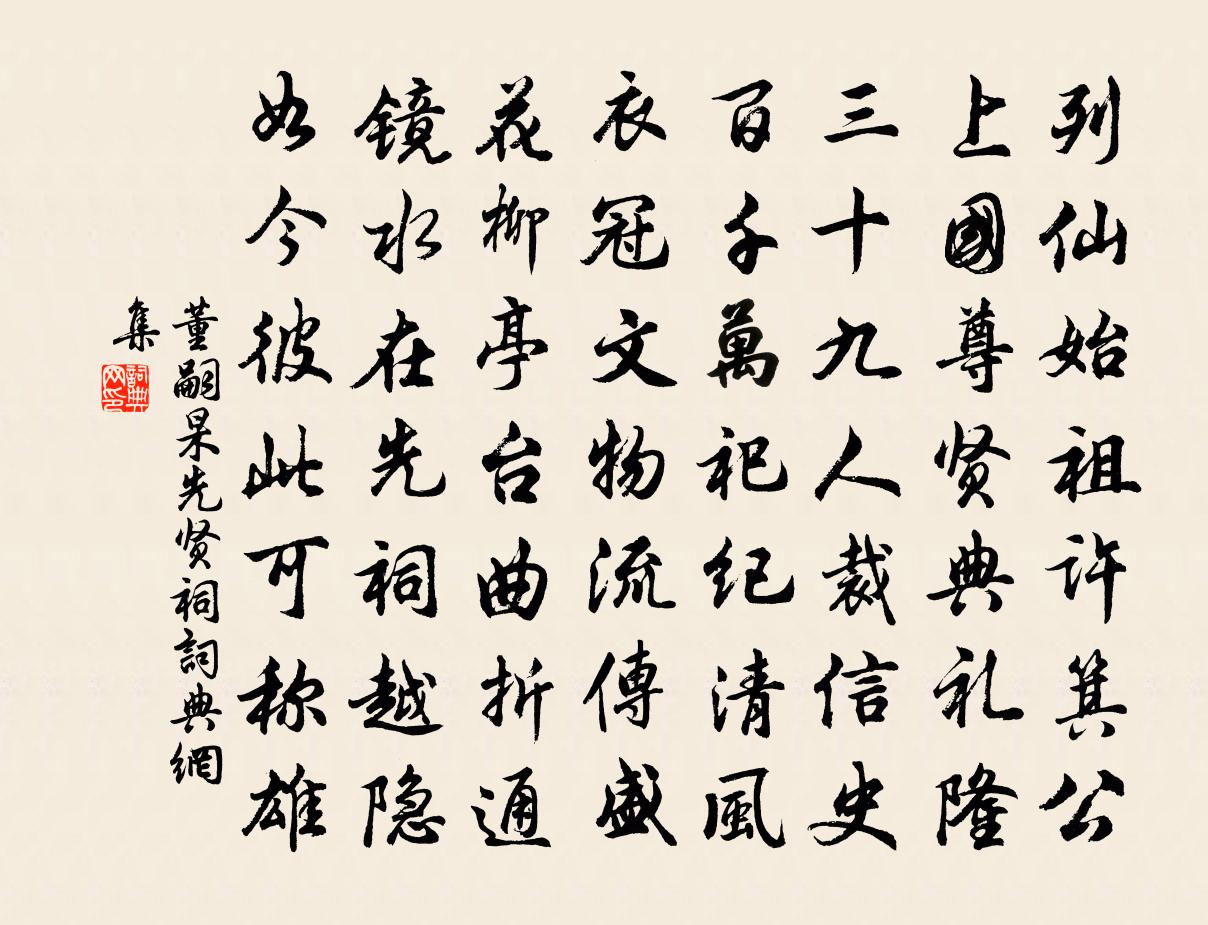 列仙始祖许箕公
上國尊贤典礼隆
三十九人裁信史
百千萬祀纪清風
衣冠文物流傳盛
花柳亭台曲折通
镜水在先祠越隐
如今彼此可称雄
董嗣杲先贤祠詞典網
集
詞典
网印